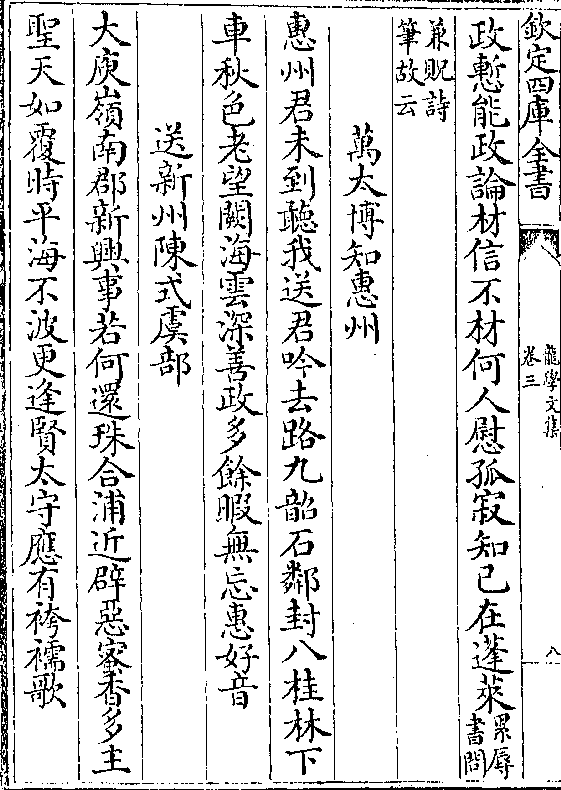 欽定四庫全書
龍學文集
卷三
八
政慙能政論材信不材何人慰孤寂知己在蓬萊累辱書問
兼貺詩
筆故云
萬太博知惠州
惠州君未到聽我送君吟去路九韶石鄰封八桂林下
車秋色老望闕海雲深善政多餘暇無忘惠好音
送新州陳式虞部
大庾嶺南郡新興事若何還珠合浦近辟惡宻香多主
聖天如覆時平海不波更逢賢太守應有袴襦歌